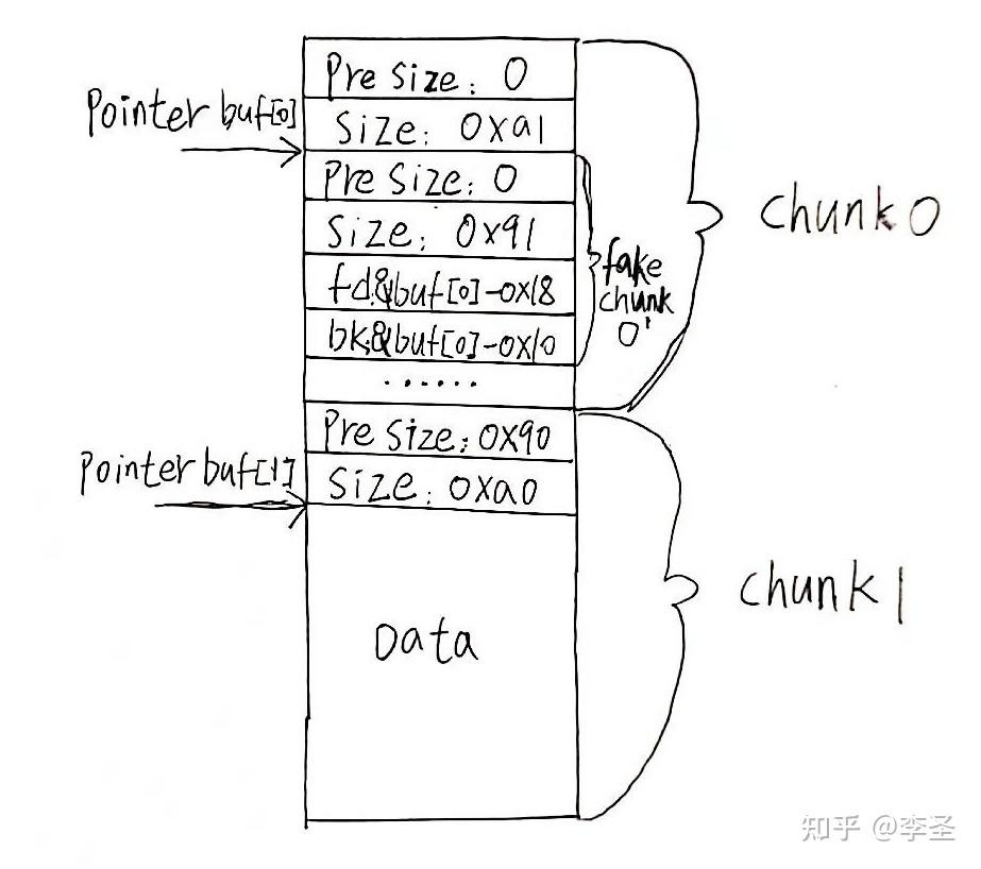 Pre Size: 0
Pointer buf[0]
Size: 0xa1
Pre Size: 0
Size: 0x91
fd:&buf[0]-0x18
bk:&buf[0]-0x10
fake
chunk
0'
chunk 0
......
Pre Size: 0x90
Pointer buf[1]
Size: 0xa0
Data
chunk 1
知乎 @李圣